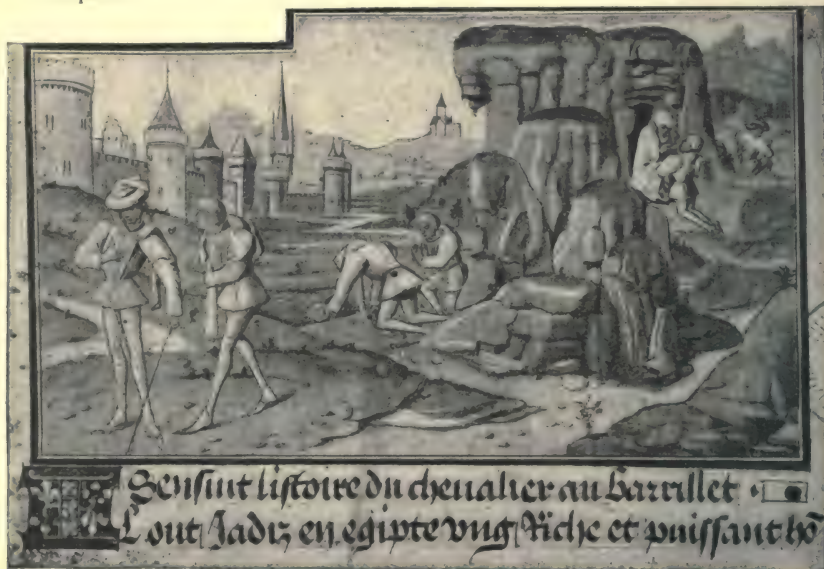 Sensuit listoire du cheualier au Barrillet
IL out Jadiz en egipte vng Riche et puissant hõ